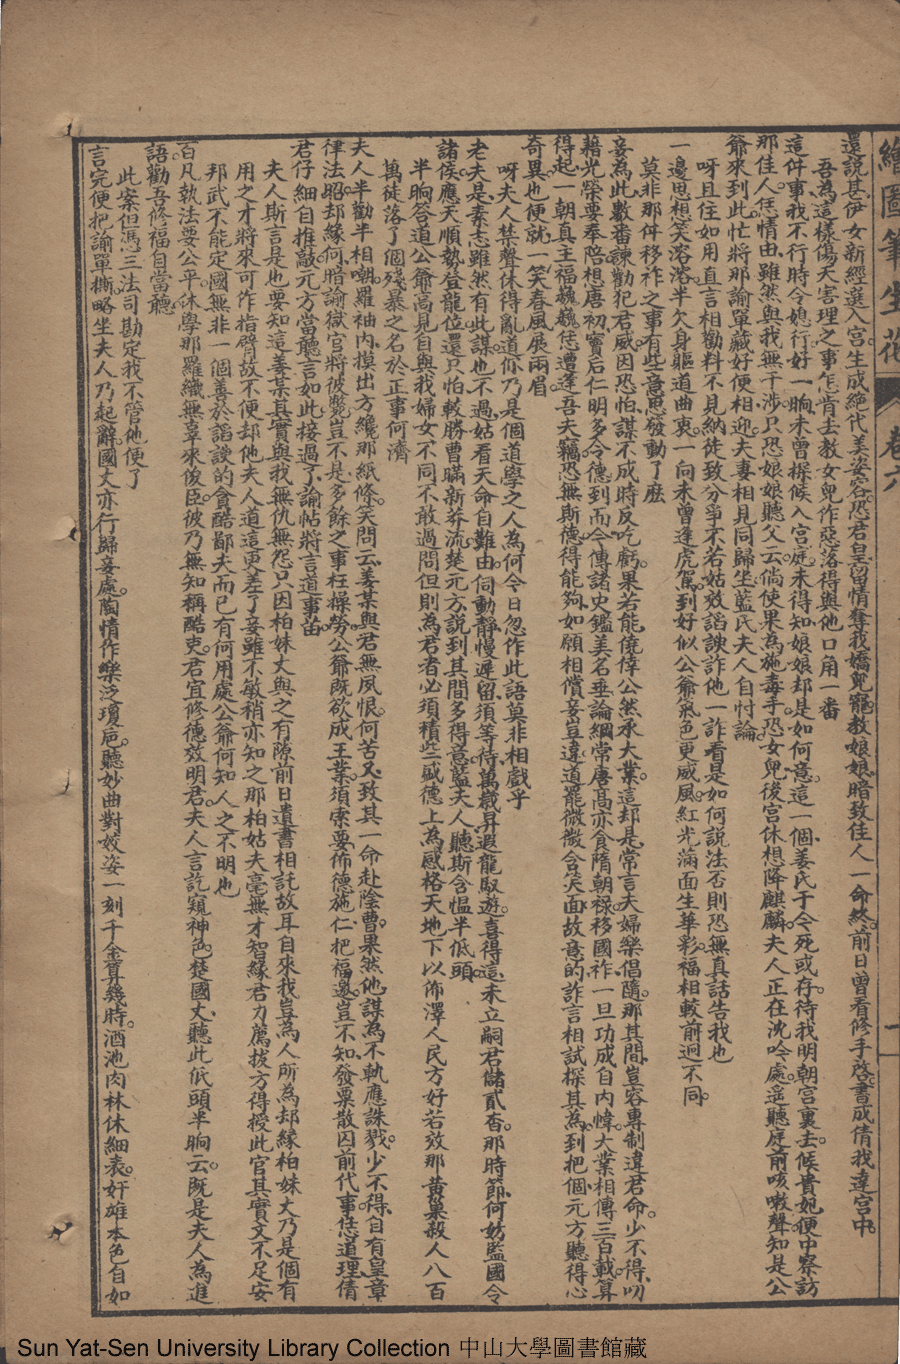 繪圖筆生花 卷六 一
還說其伊女新經選入宮。生成絕代美姿容。恐君皇留情奪我嬌兒寵。教娘娘暗致佳人一命終。前日曾看修手啓。書成倩我達宮中。
吾為這樣傷天害理之事。怎肯去教女兒作惡。落得與他口角一番
這件事我不行時令媳行。好一晌未曾探候入宮庭。未得知娘娘却是如何意。這一個姜氏于今死或存。待我明朝宮裏去。候貴妃便中察訪
那佳人。恁情由雖然與我無干涉。只恐娘娘聽父云。倘使果為施毒手。恐女兒後宮休想降麒麟。夫人正在沈吟處。遥聽庭前咳嗽聲。知是公
爺來到此。忙將那諭單藏好便相迎。夫妻相見同歸坐。藍氏夫人自忖論
呀且住如用直言相勸料不見納徒致分爭不若姑效諂諛詐他一詐看是如何說法否則恐無真話告我也
一邊思想笑溶溶。半欠身軀道曲衷。一向未曾逢虎駕。到好似公爺氣色更威風。紅光滿面生華彩。福相較前迥不同。
莫非那件移祚之事有些意思發動了麽
妾為此數番諫勸犯君威。因恐怕謀不成時反吃虧。果若能僥倖公然承大業。這却是常言夫婦樂倡隨。那其間豈容專制違君命。少不得叨
藉光榮要奉陪。想唐初竇后仁明多令德。到而今傳諸史鑑美名垂。論綱常唐高亦食隋朝祿。移國祚一旦功成自內幃。大業相傳三百載。算
得起一朝真主福巍巍。恁遭逢吾夫竊恐無斯德。得能夠如願相償妾豈違。道罷微微含笑面。故意的詐言相試探其為。到把個元方聽得心
奇異。也便就一笑春風展兩眉
呀夫人禁聲休得亂道你乃是個道學之人為何今日忽作此語莫非相戲乎
老夫是素志雖然有此謀。也不過姑看天命自難由。伺動靜慢遲留。須等待萬歲昇遐龍馭遊。喜得這未立嗣君儲貳杳。那時節何妨監國令
諸侯。應天順勢登龍位。還只怕較勝曹瞞新莽流。楚元方說到其間多得意。藍夫人聽斯含慍半低頭
半晌答道公爺高見自與我婦女不同不敢過問但則為君者必須積些盛德上為感格天地下以佈澤人民方好若效那黃巢殺人八百
萬徒落了個殘暴之名於正事何濟
夫人半勸半相嘲。羅袖內摸出方纔那紙條。笑問云姜某與君無夙恨。何苦又致其一命赴陰曹。果然他謀為不軌應誅戮。少不得自有皇章
律法昭。却緣何暗諭獄官將彼斃。豈不是多餘之事枉操勞。公爺既欲成王業。須索要佈德施仁把福邀。豈不知發粟散囚前代事。恁道理倩
君仔細自推敲。元方當聽言如此。接過了諭帖將言道事苗
夫人斯言是也要知這姜某其實與我無仇無怨只因柏妹丈與之有隙前日遺書相託故耳自來我豈為人所為却緣柏妹丈乃是個有
用之才將來可作指臂故不便却他夫人道這更差了妾雖不敏稍亦知之那柏姑夫毫無才智緣君力薦拔方得授此官其實文不足安
邦武不能定國無非一個善於諂諛的貪酷鄙夫而已有何用處公爺何知人之不明也
百凡執法要公平。休學那羅織無辜來俊臣。彼乃無知稱酷吏。君宜修德效明君。夫人言訖窺神色。楚國丈聽此低頭半晌云。既是夫人為進
語。勸吾修福自當聽
此案但憑三法司勘定我不管他便了
言完便把諭單撕。略坐夫人乃起辭。國丈亦行歸妾處。陶情作樂泛瓊卮。聽妙曲對姣姿。一刻千金算幾時。酒池肉林休細表。奸雄本色自如
Sun Yat-Sen University Library Collection 中山大學圖書館藏